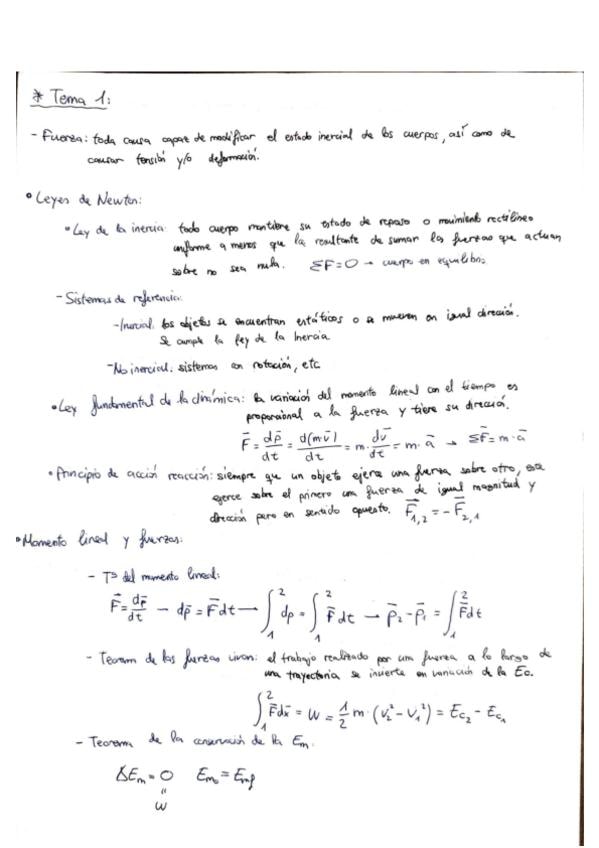 * Tema 1:
- Fuerza: toda causa capaz de modificar el estado inercial de los cuerpos, así como de
causar tensión y/o deformación.
• Leyes de Newton:
• Ley de la inercia: todo cuerpo mantiene su estado de reposo o movimiento rectilíneo
uniforme a menos que la resultante de sumar las fuerzas que actúan
sobre no sea nula. ΣF=0 → cuerpo en equilibrio
- Sistemas de referencia:
- Inercial: los objetos se encuentran estáticos o se mueven en igual dirección.
Se cumple la ley de la Inercia
- No inercial: sistemas con rotación, etc
• Ley fundamental de la dinámica: la variación del momento lineal con el tiempo es
proporcional a la fuerza y tiene su dirección.
F̄ = dp̄/dt = d(m·v̄)/dt = m·dv̄/dt = m·ā → ΣF̄ = m·ā
• Principio de acción reacción: siempre que un objeto ejerce una fuerza sobre otro, ese
ejerce sobre el primero una fuerza de igual magnitud y
dirección pero en sentido opuesto. F̄₁,₂ = -F̄₂,₁
• Momento lineal y fuerzas:
- Tª del momento lineal:
F̄ = dp̄/dt → dp̄ = F̄dt → ∫₁² dp̄ = ∫₁² F̄dt → p̄₂ - p̄₁ = ∫₁² F̄dt
- Teorema de las fuerzas vivas: el trabajo realizado por una fuerza a lo largo de
una trayectoria se invierte en variación de la Ec.
∫₁² F̄dx̄ = W = 1/2 m·(v₂² - v₁²) = Ec₂ - Ec₁
- Teorema de la conservación de la Em:
ΔEm = 0 Em₀ = Emf
"
W